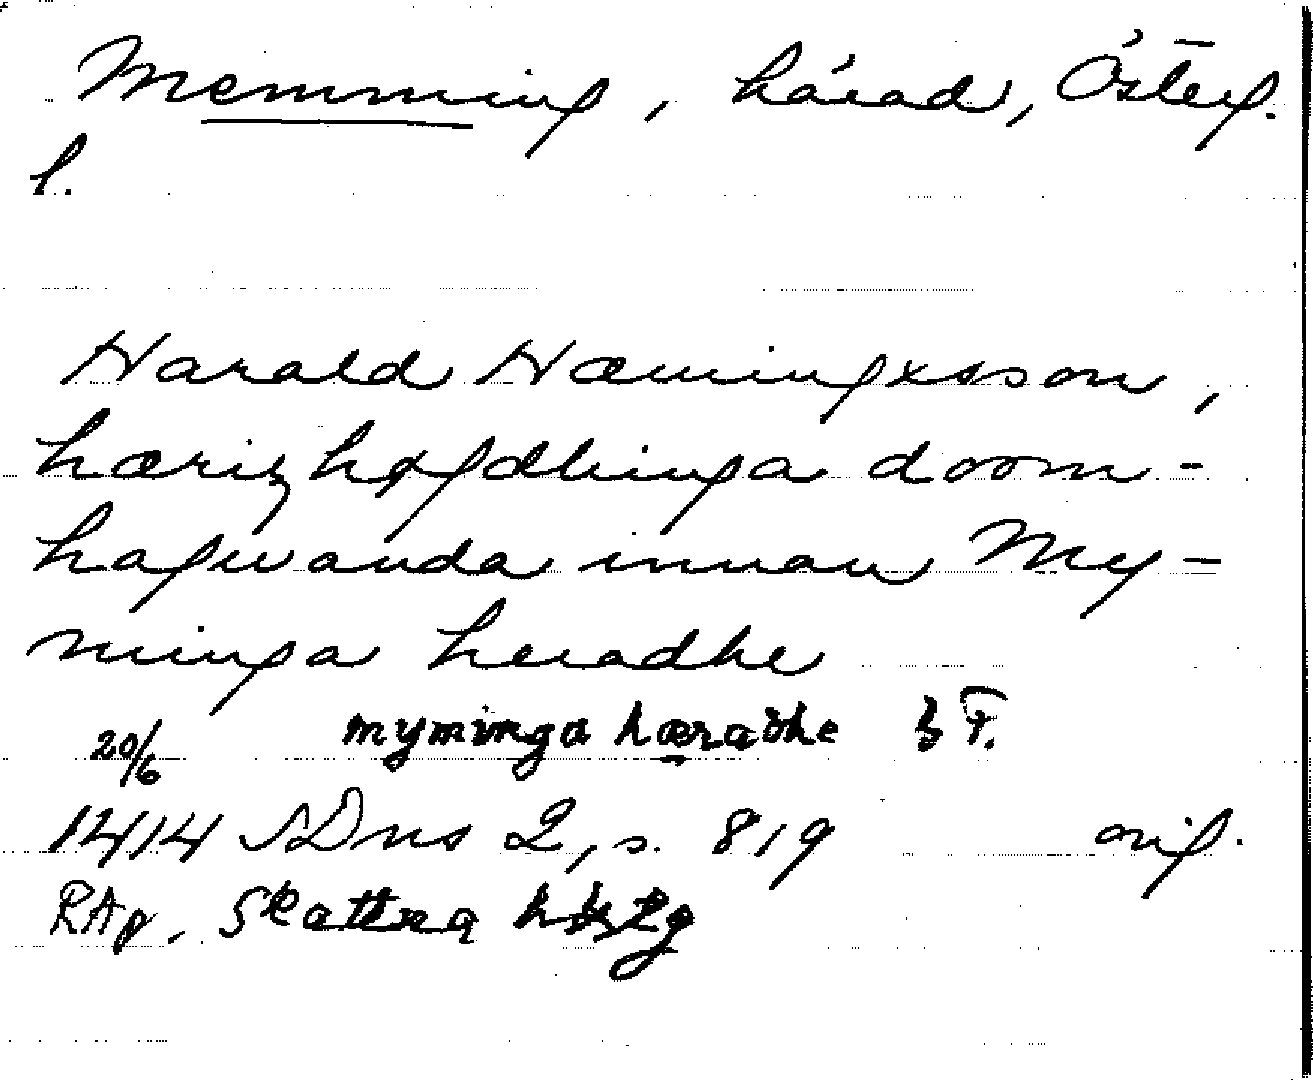 Memming, härad, Österg.
l.
Harald Hæmingxsson,
hæriz høfdhinga doom-
hafwanda innan My-
ninga heradhe
20/6 myminga hæradhe
1414 SDns 2, s. 819 orig.
RAp. Skattna